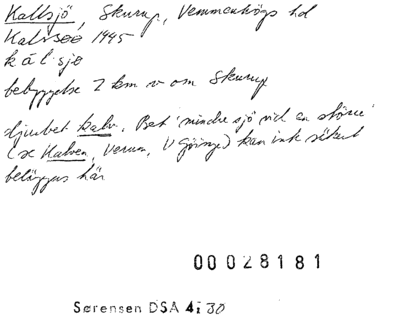 Kallsjö, Skurup, Vemmenhögs hd
Kalsøø 1945
kálsjø
bebyggelse 2 km v om Skurup
djurbet kalv. Bet 'mindre sjö vid en större'
(se Kalven, Verum, V Göinge) kan ink säkert
beläggas här
00028181
Sørensen DSA 4: 30